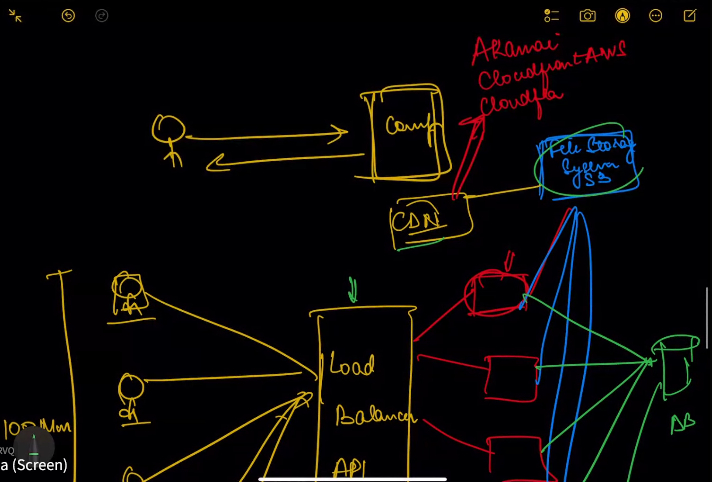 Akamai
Cloudfront-AWS
Cloudfla
Comp
File Storage
System
S3
CDN
Load
Balancer
API
100Mm
DB
RVQ
a (Screen)